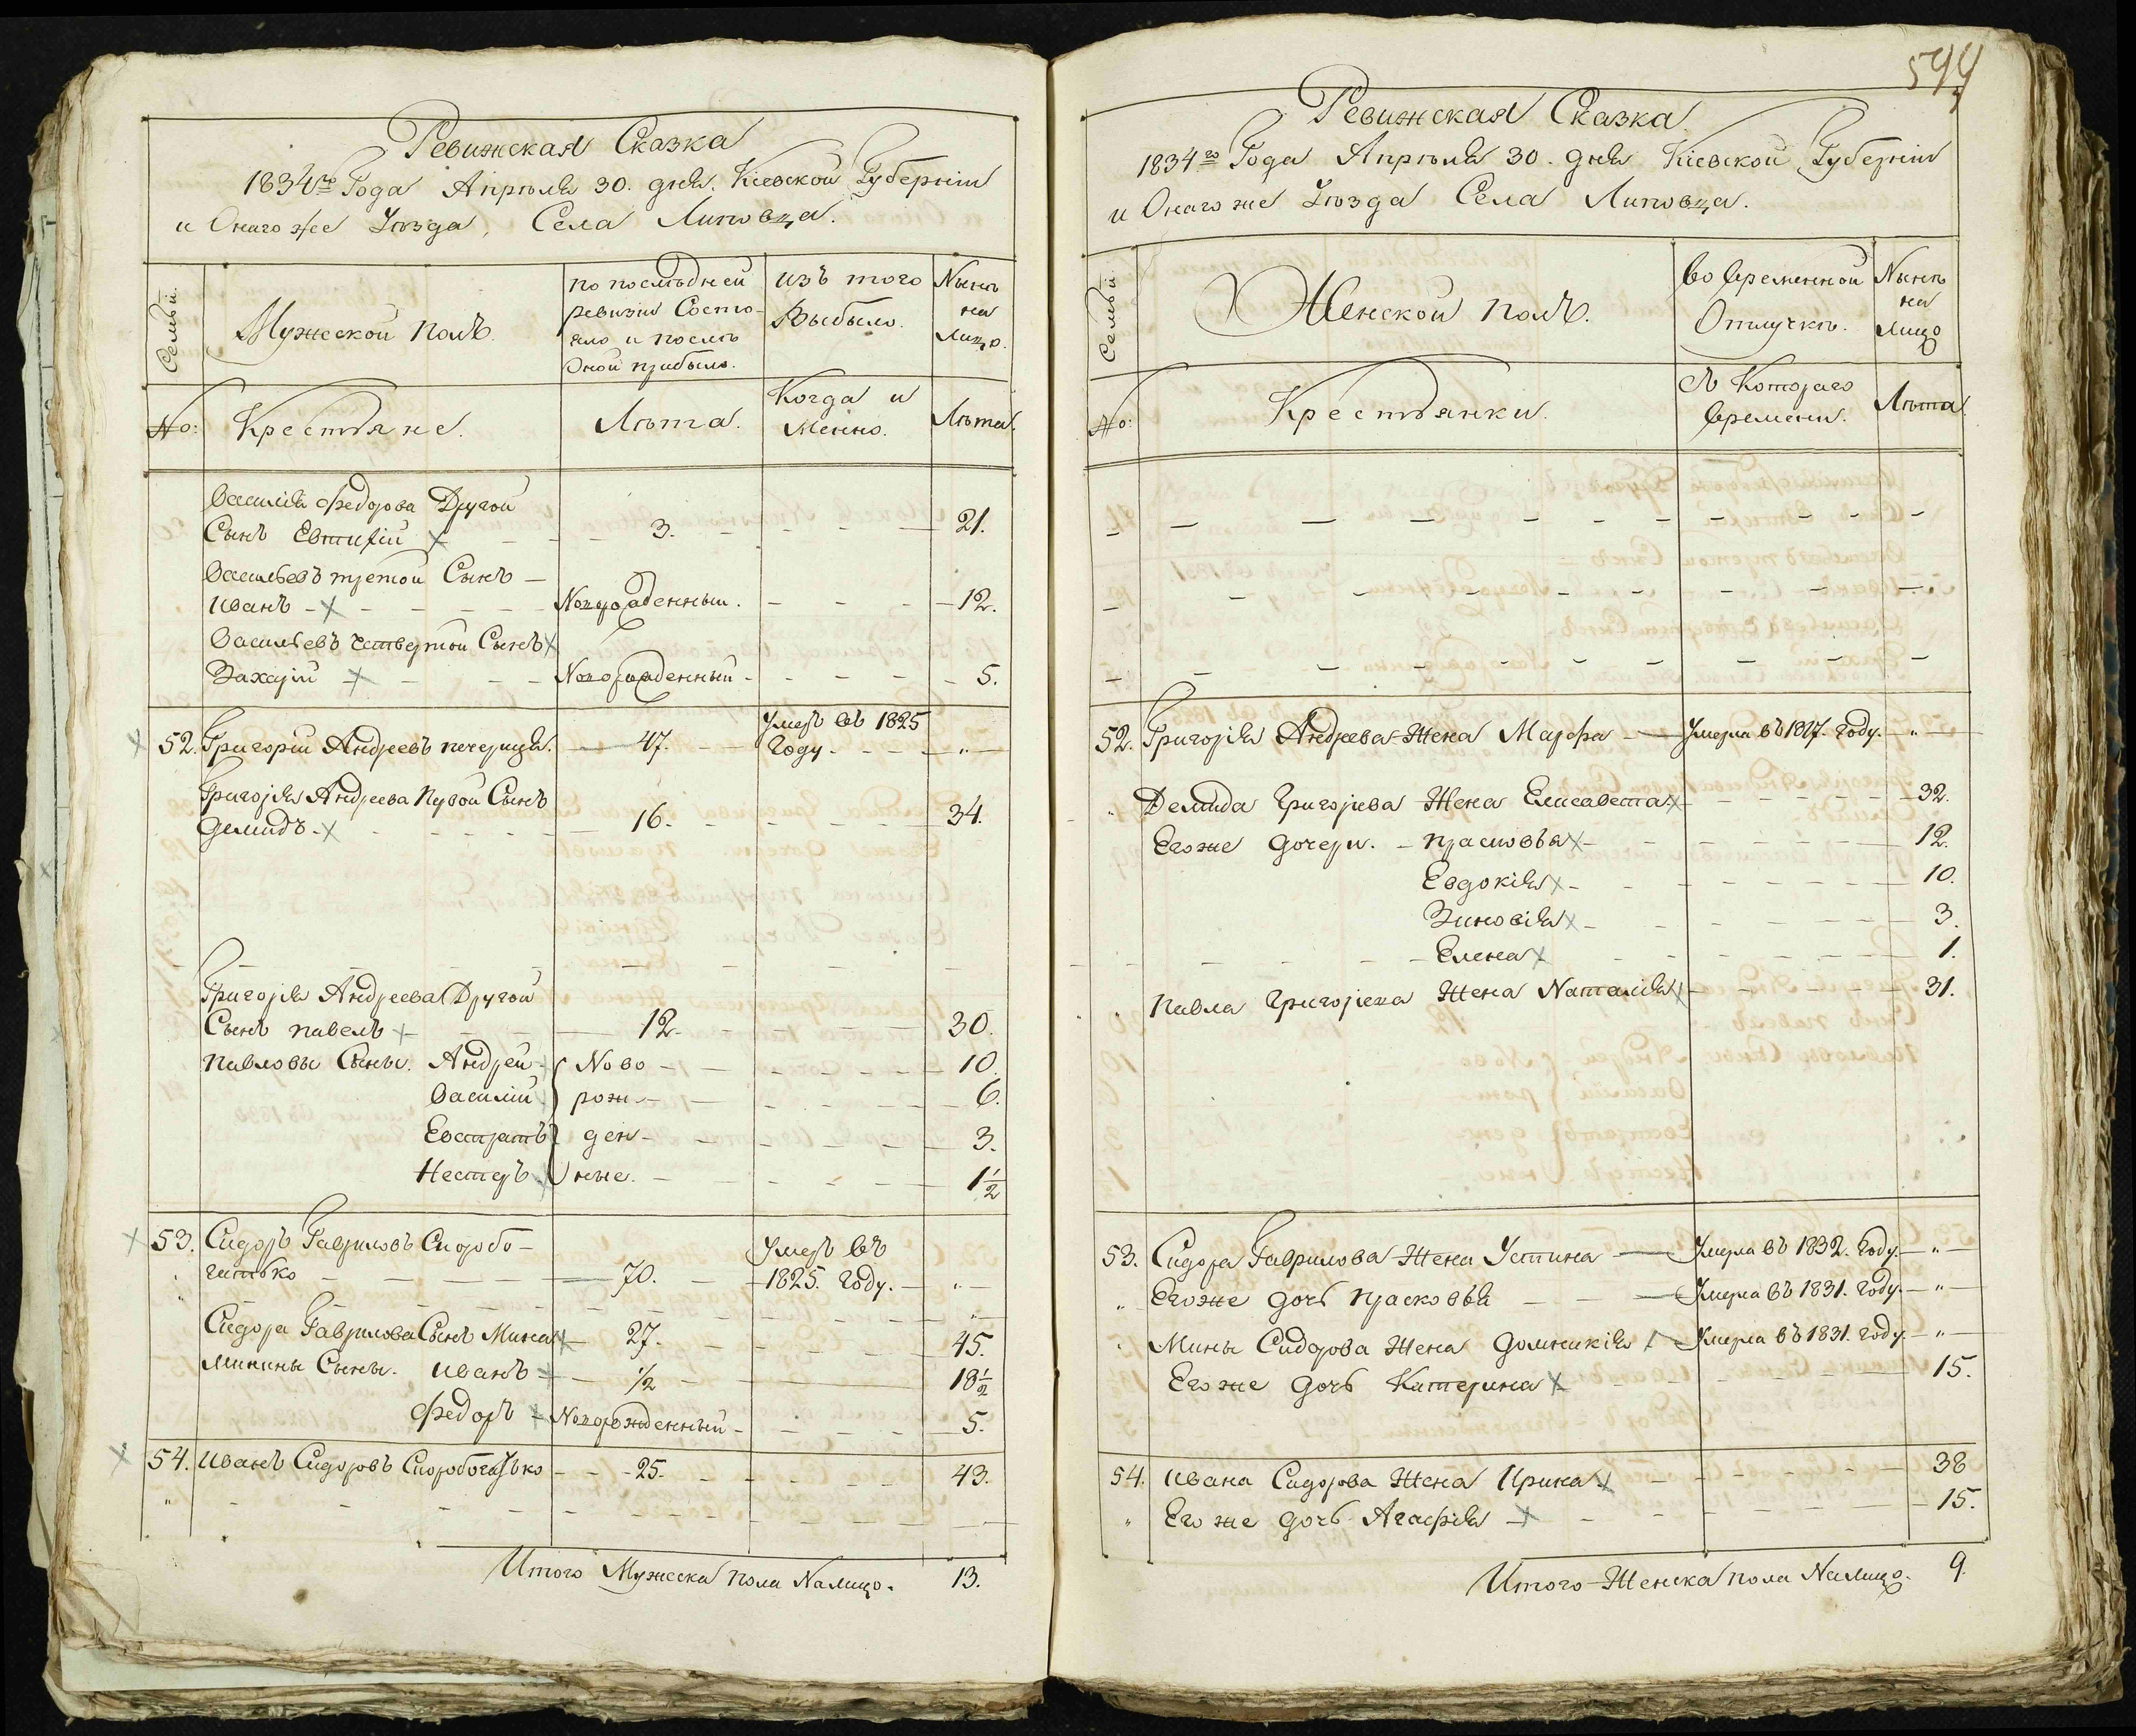 Ревижская Сказка
1834го Года Апрѣля 30. дня. Кіевской Губерніи
и Онаго же Уѣзда, Села Липовца.
Семьи.
Мужеской полъ.
По послѣдней
ревизіи Состо-
яло и послѣ
Оной прибыло.
изъ того
Выбыло.
Нынѣ
на
Лицо.
No:
Крестьяне.
Лѣта.
Когда и
Менно.
Лѣта.
Василія Федорова Другой
Сынъ Евтихій 3. 21.
Васильевъ третой Сынъ
Иванъ Новорожденный. 12.
Васильевъ Четвертой Сынъ
Захарій Новорожденный 5.
52. Григорій Андреевъ печерица. 47. Умеръ въ 1825 "
Году.
Григорія Андреева Первой Сынъ
Демидъ 16. 34.
Григорія Андреева Другой
Сынъ павелъ 12. 30.
Павловы Сыны. Андрей Ново 10.
Василій рож 6.
Евстратъ ден 3.
Нестеръ ные. 1 1/2
53. Сидоръ Гавриловъ Скоробо- Умеръ въ
гатько 70. 1825. Году. "
Сидора Гаврилова Сынъ Мина 27. 45.
Минины Сыны. Иванъ 1/2 18 1/2
Федоръ Новорожденный 5.
54. Иванъ Сидоровъ Скоробогатько 25. 43.
Итого Мужеска пола Налицо. 13.
544
Ревижская Сказка
1834го Года Апрѣля 30. дня Кіевской Губерніи
и Онаго же Уѣзда Села Липовца.
Семьи.
Женской полъ.
Во Временной
Отлучкѣ.
Нынѣ
на
Лицо
No:
Крестьянки.
Съ Котораго
Времени.
Лѣта
52. Григорія Андреева Жена Марфа Умерла въ 1817. Году. "
Демида Григорьева Жена Елисавета 32.
Его же дочери. Прасковья 12.
Евдокія 10.
Зиновія 3.
Елена 1.
Павла Григорьева Жена Наталія 31.
53. Сидора Гаврилова Жена Устина Умерла въ 1832. Году. "
" Его же дочь Прасковья Умерла въ 1831. Году. "
Мины Сидорова Жена Домникія Умерла въ 1831. Году. "
Его же дочь Катерина 15.
54. Ивана Сидорова Жена Ирина 38
" Его же дочь Агафія 15.
Итого Женска пола Налицо. 9.